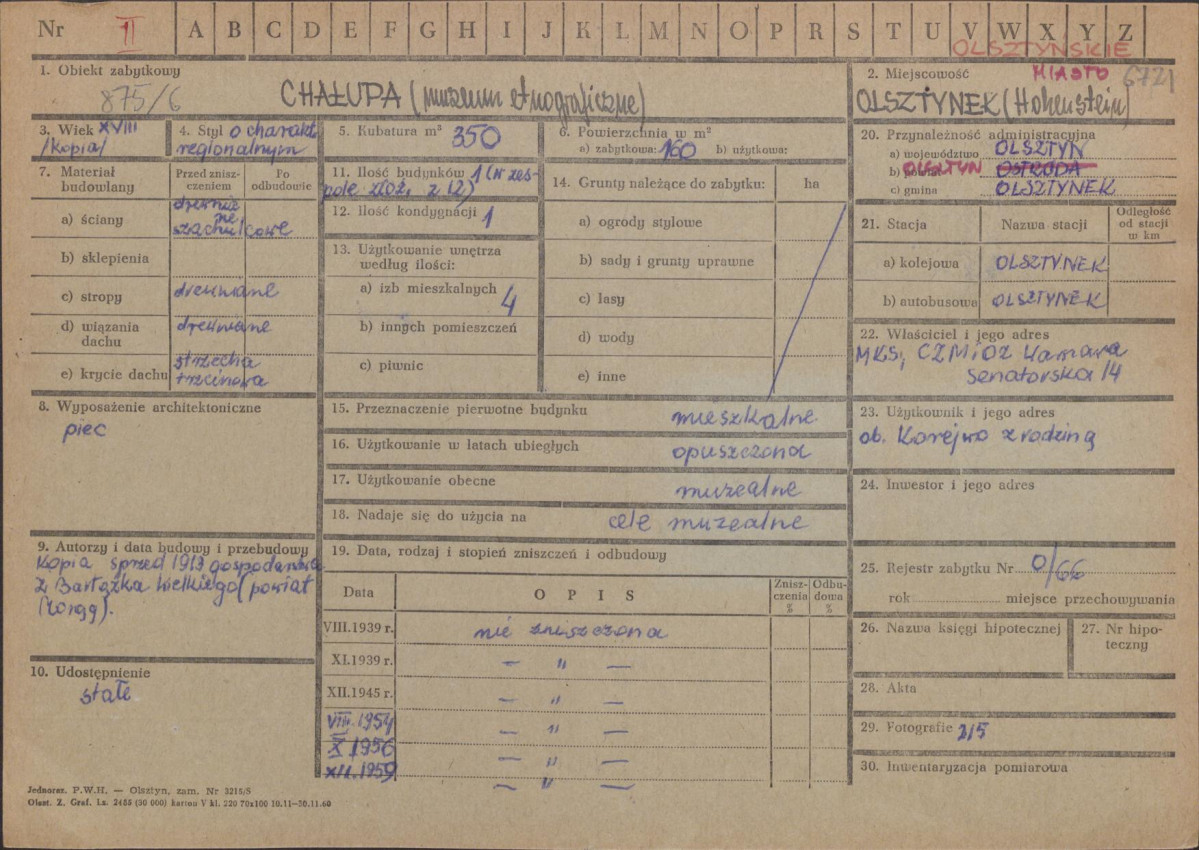 Nr II A B C D E F G H I J K L M N O P R S T U V W X Y Z
OLSZTYŃSKIE
1. Obiekt zabytkowy
875/6
CHAŁUPA (muzeum etnograficzne)
2. Miejscowość MIASTO 6721
OLSZTYNEK (Hohenstein)
3. Wiek XVIII
/kopia/
4. Styl o charakt.
regionalnym
5. Kubatura m³ 350
6. Powierzchnia w m²
a) zabytkowa: 160 b) użytkowa:
20. Przynależność administracyjna
a) województwo OLSZTYN
b) powiat OLSZTYN OSTRÓDA
c) gmina OLSZTYNEK
7. Materiał
budowlany
Przed znisz-
czeniem
Po
odbudowie
a) ściany drewnia
ne
szachulcowe
b) sklepienia
c) stropy drewniane
d) wiązania
dachu drewniane
e) krycie dachu strzecha
trzcinowa
11. Ilość budynków 1 (w zes-
pole złoż. z 12)
12. Ilość kondygnacji 1
13. Użytkowanie wnętrza
według ilości:
a) izb mieszkalnych 4
b) innych pomieszczeń
c) piwnic
14. Grunty należące do zabytku: ha
a) ogrody stylowe
b) sady i grunty uprawne
c) lasy
d) wody
e) inne
21. Stacja Nazwa stacji Odległość
od stacji
w km
a) kolejowa OLSZTYNEK
b) autobusowa OLSZTYNEK
22. Właściciel i jego adres
MKS, CZMiOZ Warszawa
Senatorska 14
8. Wyposażenie architektoniczne
piec
15. Przeznaczenie pierwotne budynku mieszkalne
16. Użytkowanie w latach ubiegłych opuszczona
17. Użytkowanie obecne muzealne
18. Nadaje się do użycia na cele muzealne
23. Użytkownik i jego adres
ob. Korejwo z rodziną
24. Inwestor i jego adres
9. Autorzy i data budowy i przebudowy
Kopia sprzed 1913 gospodarstwa
z Bartążka Wielkiego (powiat
19. Data, rodzaj i stopień zniszczeń i odbudowy
Data OPIS Znisz-
czenia
% Odbu-
dowa
%
VIII.1939 r. nie zniszczona
XI.1939 r. — " —
XII.1945 r. — " —
VIII.1954 — " —
X 1956 — " —
XII.1959 — " —
25. Rejestr zabytku Nr 0/66
rok miejsce przechowywania
26. Nazwa księgi hipotecznej
27. Nr hipo-
teczny
10. Udostępnienie
stałe
28. Akta
29. Fotografie 2/5
30. Inwentaryzacja pomiarowa
Jednoraz. P.W.H. — Olsztyn, zam. Nr 3215/S
Olszt. Z. Graf. Lz. 2455 (30 000) karton V kl. 220 70x100 10.11—30.11.60